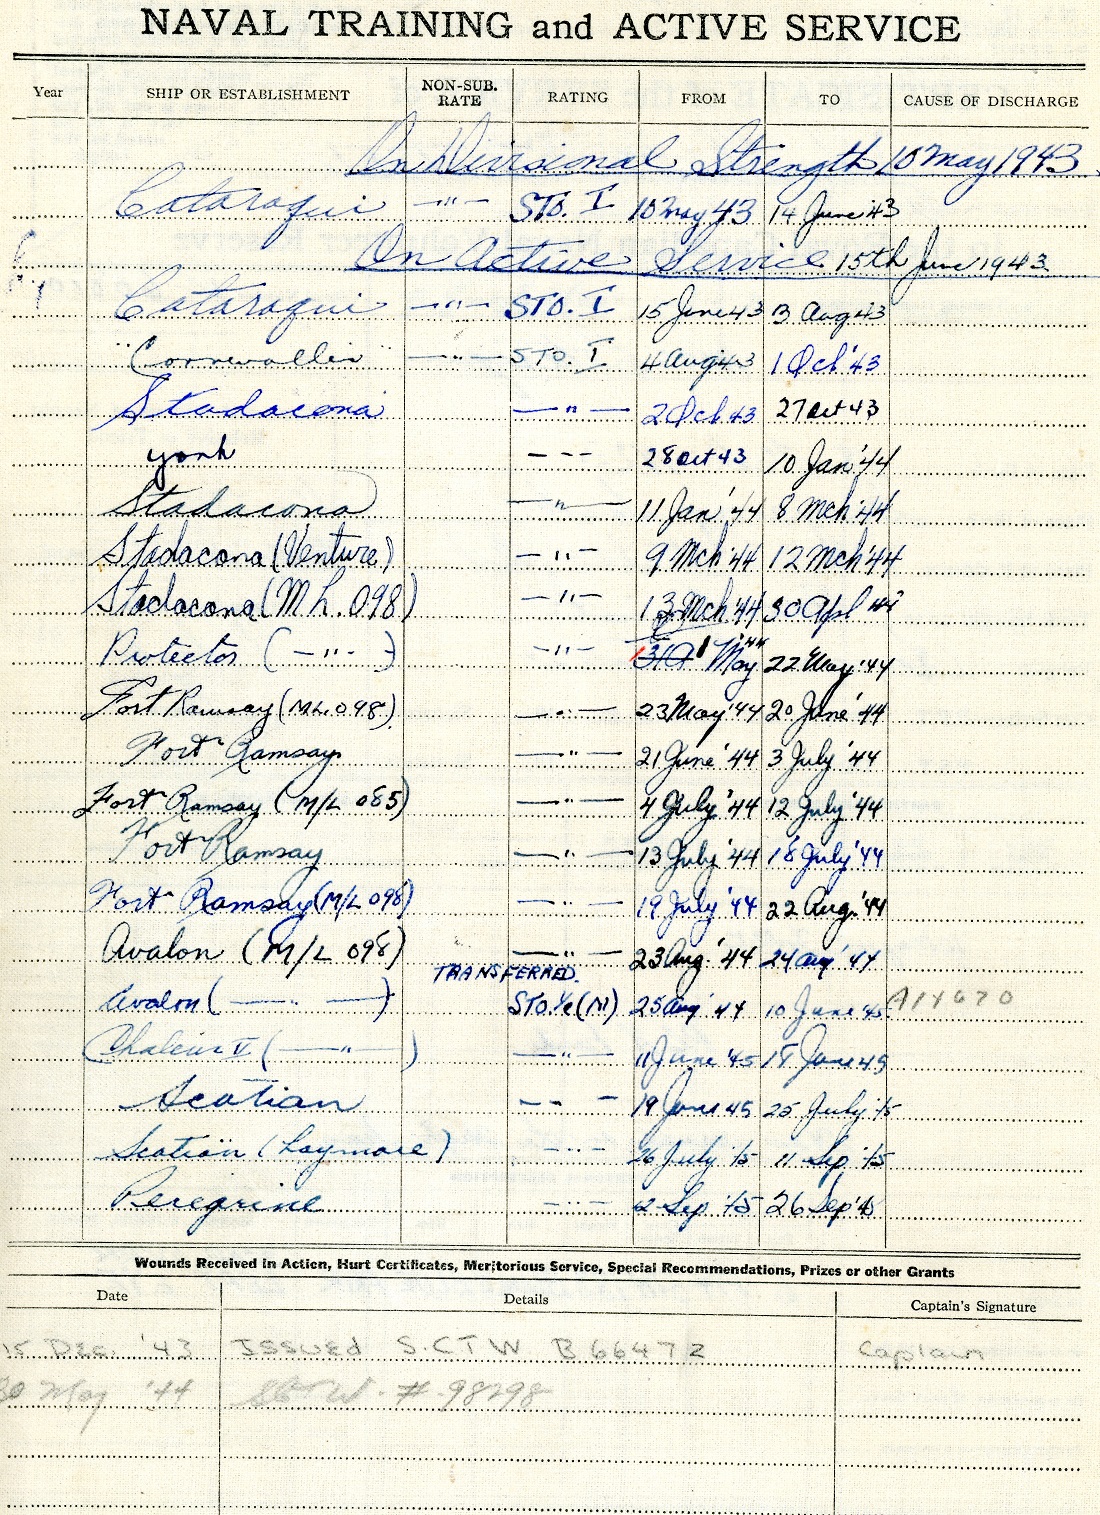 NAVAL TRAINING and ACTIVE SERVICE
Year SHIP OR ESTABLISHMENT NON-SUB. RATE RATING FROM TO CAUSE OF DISCHARGE
On Divisional Strength 10 May 1943
Cataraqui —"— STO. I 10 May 43 14 June '43
On Active Service 15th June 1943
Cataraqui —"— STO. I 15 June 43 3 Aug 43
"Cornwallis" —"— STO. I 4 Aug 43 1 Oct '43
Stadacona —"— 2 Oct 43 27 Oct 43
York - - - 28 Oct 43 10 Jan '44
Stadacona —"— 11 Jan '44 8 Mch '44
Stadacona (Venture) —"— 9 Mch '44 12 Mch '44
Stadacona (ML. 098) —"— 13 Mch '44 30 Apl
Protector (—"—) —"— 1 May '44 22 May '44
Fort Ramsay (ML 098) —"— 23 May '44 20 June '44
Fort Ramsay —"— 21 June '44 3 July '44
Fort Ramsay (M/L 085) —"— 4 July '44 12 July '44
Fort Ramsay —"— 13 July '44 18 July '44
Fort Ramsay (M/L 098) —"— 19 July '44 22 Aug. '44
Avalon (M/L 098) —"— 23 Aug. '44 24 Aug '44
TRANSFERRED.
Avalon (—"—) STO. (M) 25 Aug '44 10 June '45 A14670
Chaleur V (—"—) —"— 11 June '45 18 June 45
Scotian - - - 19 June 45 25 July '45
Scotian (Laymore) —"— 26 July '45 11 Sep '45
Peregrine —"— 12 Sep '45 26 Sep '45
Wounds Received in Action, Hurt Certificates, Meritorious Service, Special Recommendations, Prizes or other Grants
Date Details Captain's Signature
15 Dec. '43 ISSUED S.C T W B 66472 Captain
30 May '44 SCTW. # 98298